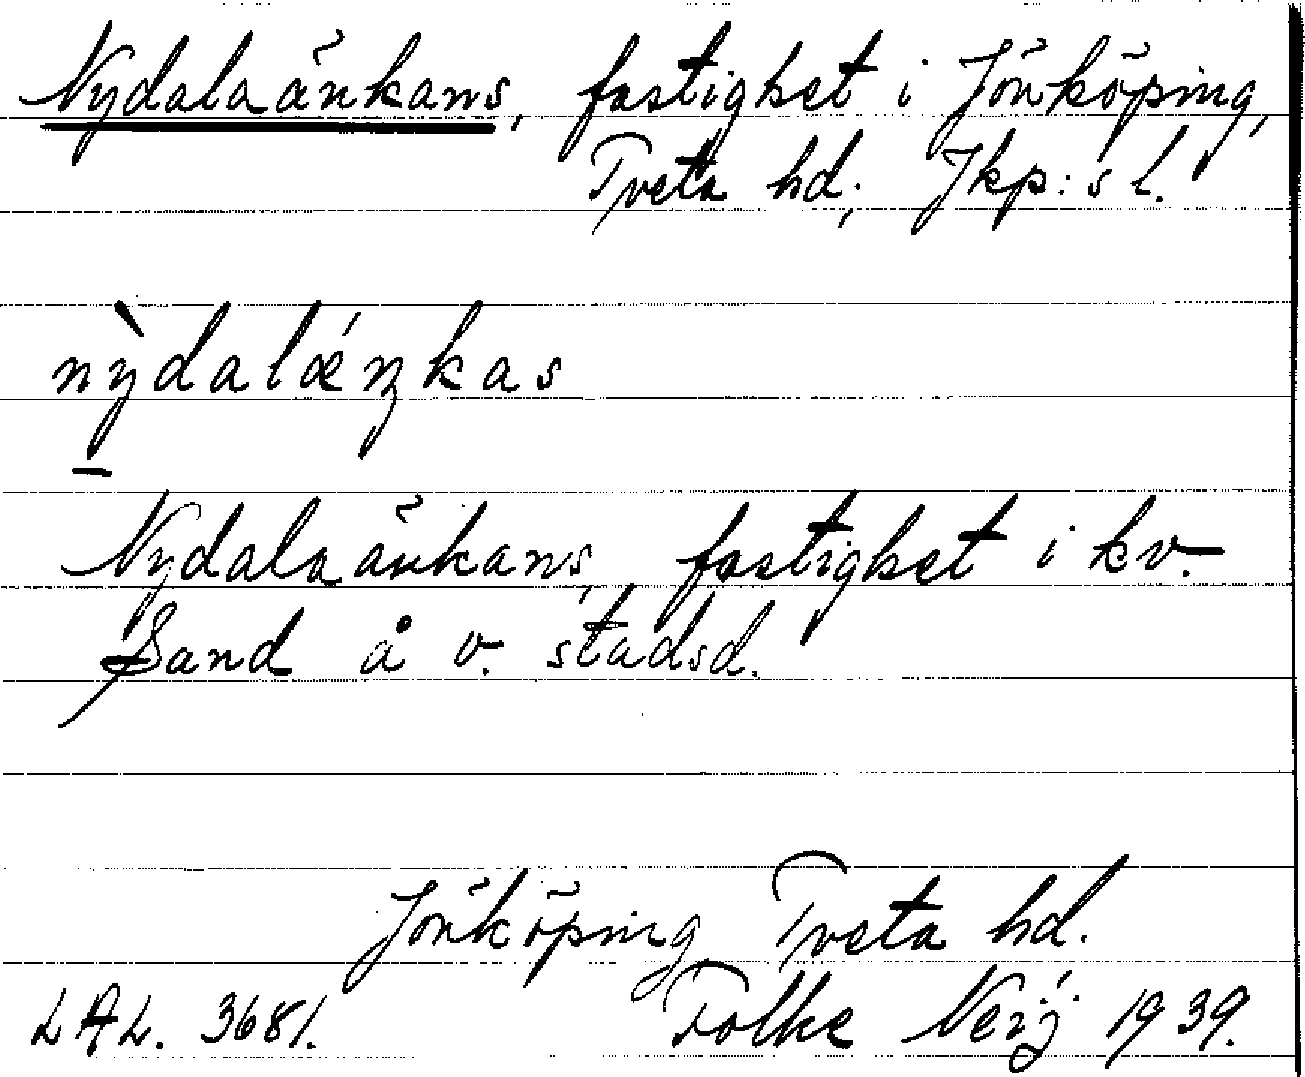 Nydalaänkans, fastighet i Jönköping,
Tveta hd; Jkp:s l.
nỳdalǽŋkas
Nydalaänkans, fastighet i kv.
Sand å v. stadsd.
Jönköping, Tveta hd.
LAL. 3681. Folke Neij 1939.